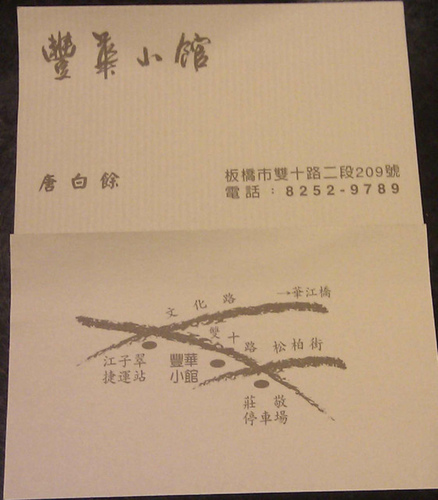 豐華小館
唐白餘
板橋市雙十路二段209號
電話：8252-9789
文化路
→華江橋
雙十路
松柏街
江子翠
捷運站
豐華
小館
莊敬
停車場